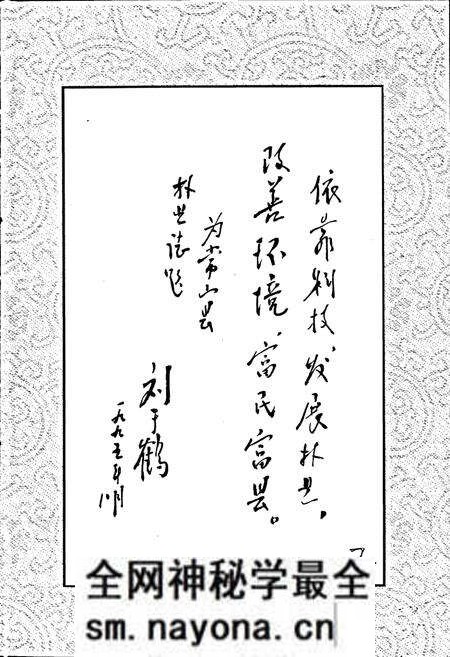 依靠科技、发展林业，
改善环境、富民富县。
为常山县
林业志题
刘于鹤
一九九五年八月
全网神秘学最全
sm.nayona.cn